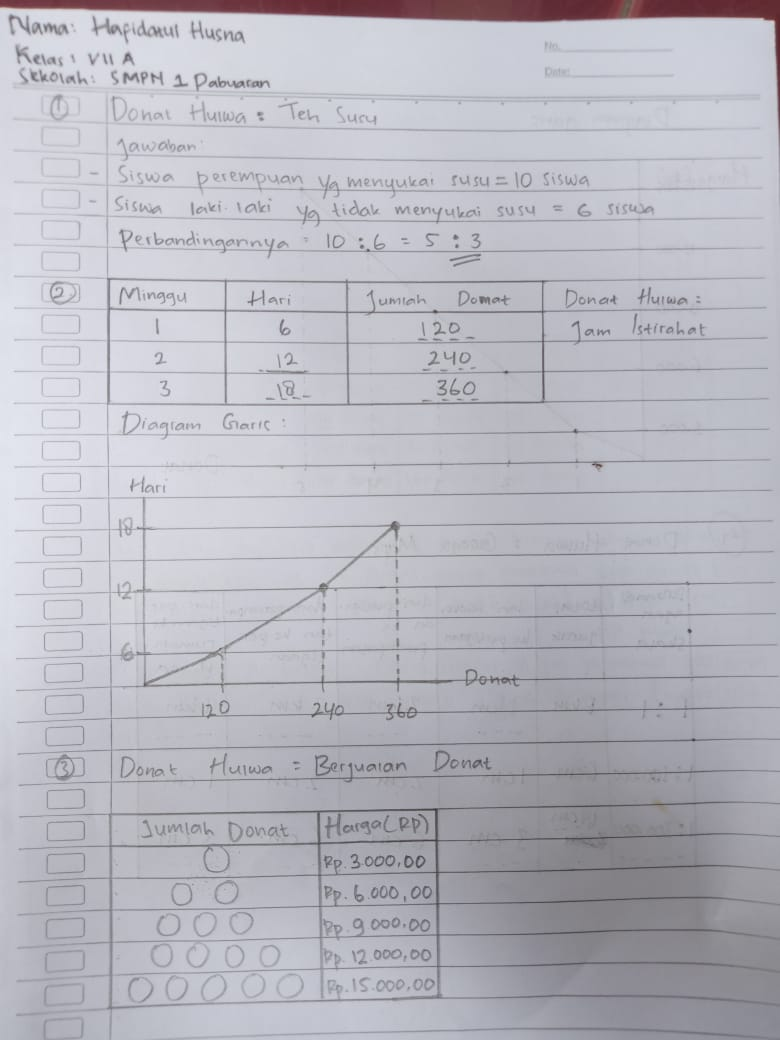 Nama: Hapidatul Husna
No.
Kelas: VII A
Date:
Sekolah: SMPN 1 Pabuaran
① Donat Hulwa: Teh Susu
Jawaban:
- Siswa perempuan yg menyukai susu = 10 siswa
- Siswa laki-laki yg tidak menyukai susu = 6 siswa
Perbandingannya = 10 : 6 = 5 : 3
② Minggu Hari Jumlah Donat Donat Hulwa:
1 6 120 Jam Istirahat
2 12 240
3 18 360
Diagram Garis:
Hari
18
12
6
Donat
120 240 360
③ Donat Hulwa = Berjualan Donat
Jumlah Donat Harga (RP)
Rp. 3.000,00
Rp. 6.000,00
Rp. 9.000,00
Rp. 12.000,00
Rp. 15.000,00